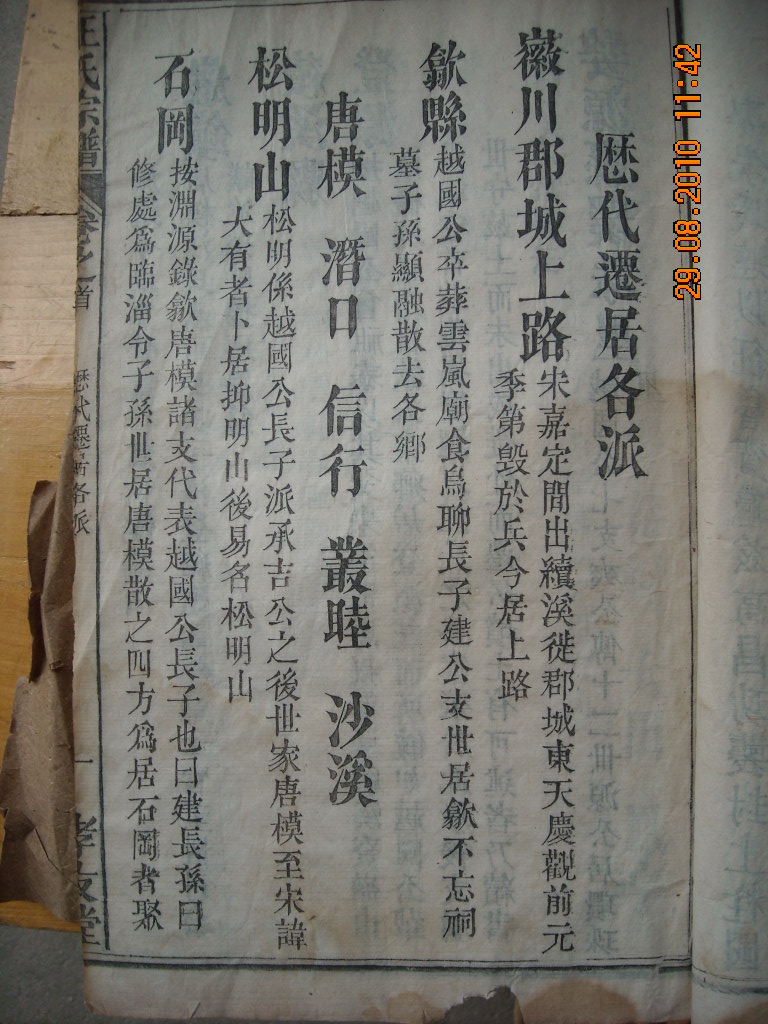 歷代遷居各派
徽川郡城上路
宋嘉定間出續溪徙郡城東天慶觀前元
季第毀於兵今居上路
歙縣
越國公卒葬雲嵐廟食烏聊長子建公支世居歙不忘祠
墓子孫顯融散去各鄉
唐模 潛口 信行 叢睦 沙溪
松明山
松明係越國公長子派承吉公之後世家唐模至宋諱
大有者卜居抑明山後易名松明山
石岡
按淵源錄歙唐模諸支代表越國公長子也曰建長孫曰
修處爲臨淄令子孫世居唐模散之四方爲居石岡者聚
氏宗譜 卷之首 歷代遷居各派 一
29.08.2010 11:42